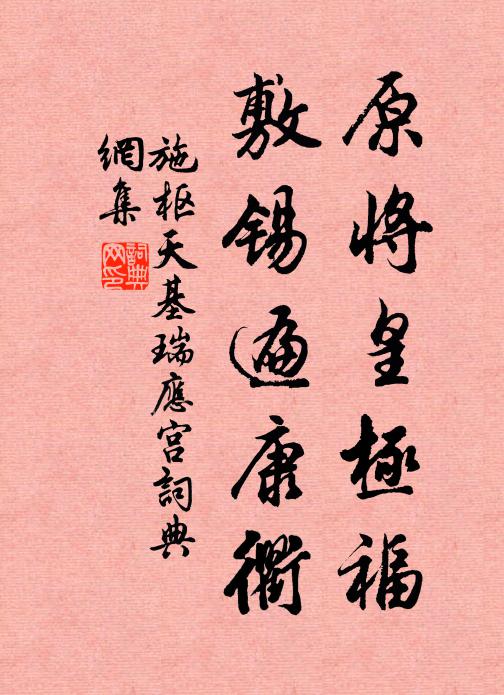 原將皇極福
敷錫遍康衢
施枢天基瑞應宮詞典
網集
詞典網印